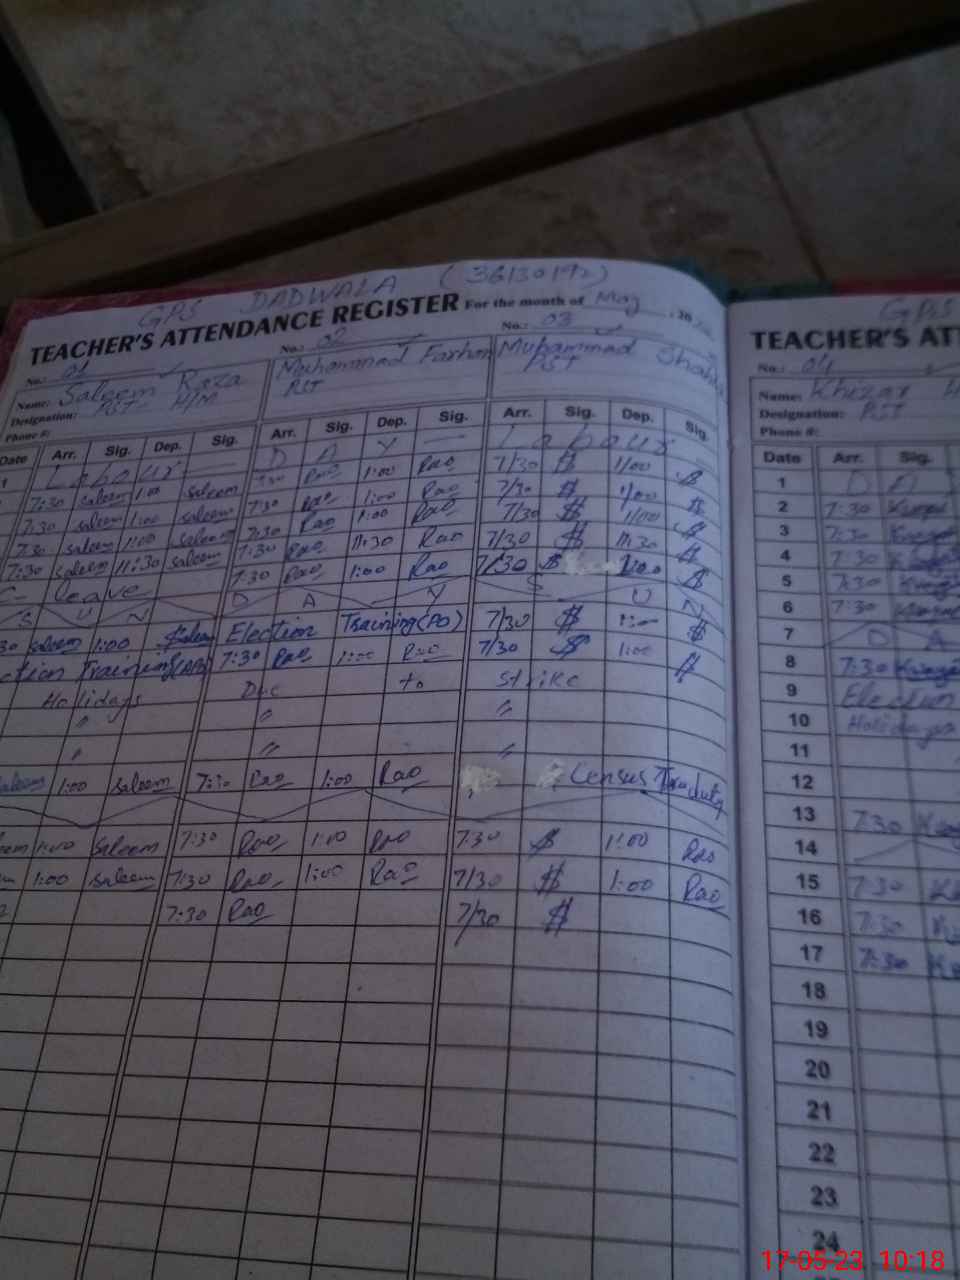 GPS DADWALA (36130192)
TEACHER'S ATTENDANCE REGISTER For the month of May 20
No.: 01 No.: 02 No.: 03
Name: Saleem Raza Muhammad Farhan Muhammad
Designation: PST H/M PST PST
Phone #:
Date Arr. Sig. Dep. Sig. Arr. Sig. Dep. Sig. Arr. Sig. Dep. Sig.
1 Labour DAY Labour
7:30 saleem 1:00 saleem 7:30 Rao 1:00 Rao 7/30 $ 1/00 $
7:30 saleem 1:00 saleem 7:30 Rao 1:00 Rao 7/30 $ 1/00 $
7:30 saleem 1:00 saleem 7:30 Rao 1:00 Rao 7/30 $ 1/00 $
7:30 saleem 11:30 saleem 7:30 Rao 11:30 Rao 7/30 $ 11:30 $
C- leave 7:30 Rao 1:00 Rao 7/30 $ 1:00 $
S U N D A Y S U N
30 saleem 1:00 Saleem Election Training(PO) 7/30 $ 1:- $
ction Training 7:30 Rao 1:00 Rao 7/30 $ 1:00 $
Holidays Due to strike
" " "
" " "
saleem 1:00 saleem 7:30 Rao 1:00 Rao Census
eem 1:00 saleem 7:30 Rao 1:00 Rao 7:30 $ 1:00 Rao
1:00 saleem 7:30 Rao 1:00 Rao 7/30 $ 1:00 Rao
7:30 Rao 7/30 $
GPS
TEACHER'S ATT
No.: 04
Name: Khizar H
Designation: PST
Phone #:
Date Arr. Sig.
1 D A
2 7:30
3 7:30
4 7:30
5 7:30
6 7:30
7 D A
8 7:30
9 Election
10 Holidays
11
12
13 7:30
14
15 7:30
16 7:30
17 7:30
18
19
20
21
22
23
24
17-05-23 10:18